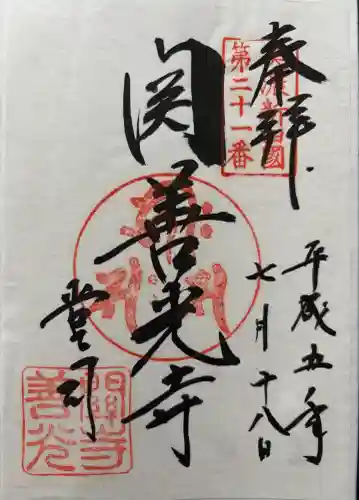 奉拝
第二十一番
平成五年
七月十八日
関善光寺
堂司
関善光寺